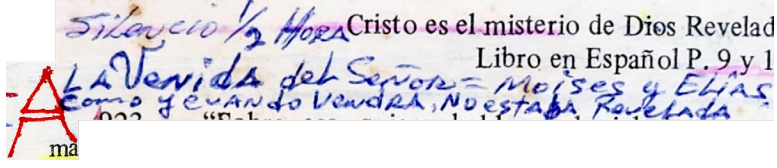 Silencio 1/2 Hora Cristo es el misterio de Dios Revelad
Libro en Español P. 9 y 1
LA Venida del Señor = Moises y Elías
A como y cuando vendra, No estaba Revelada
ma